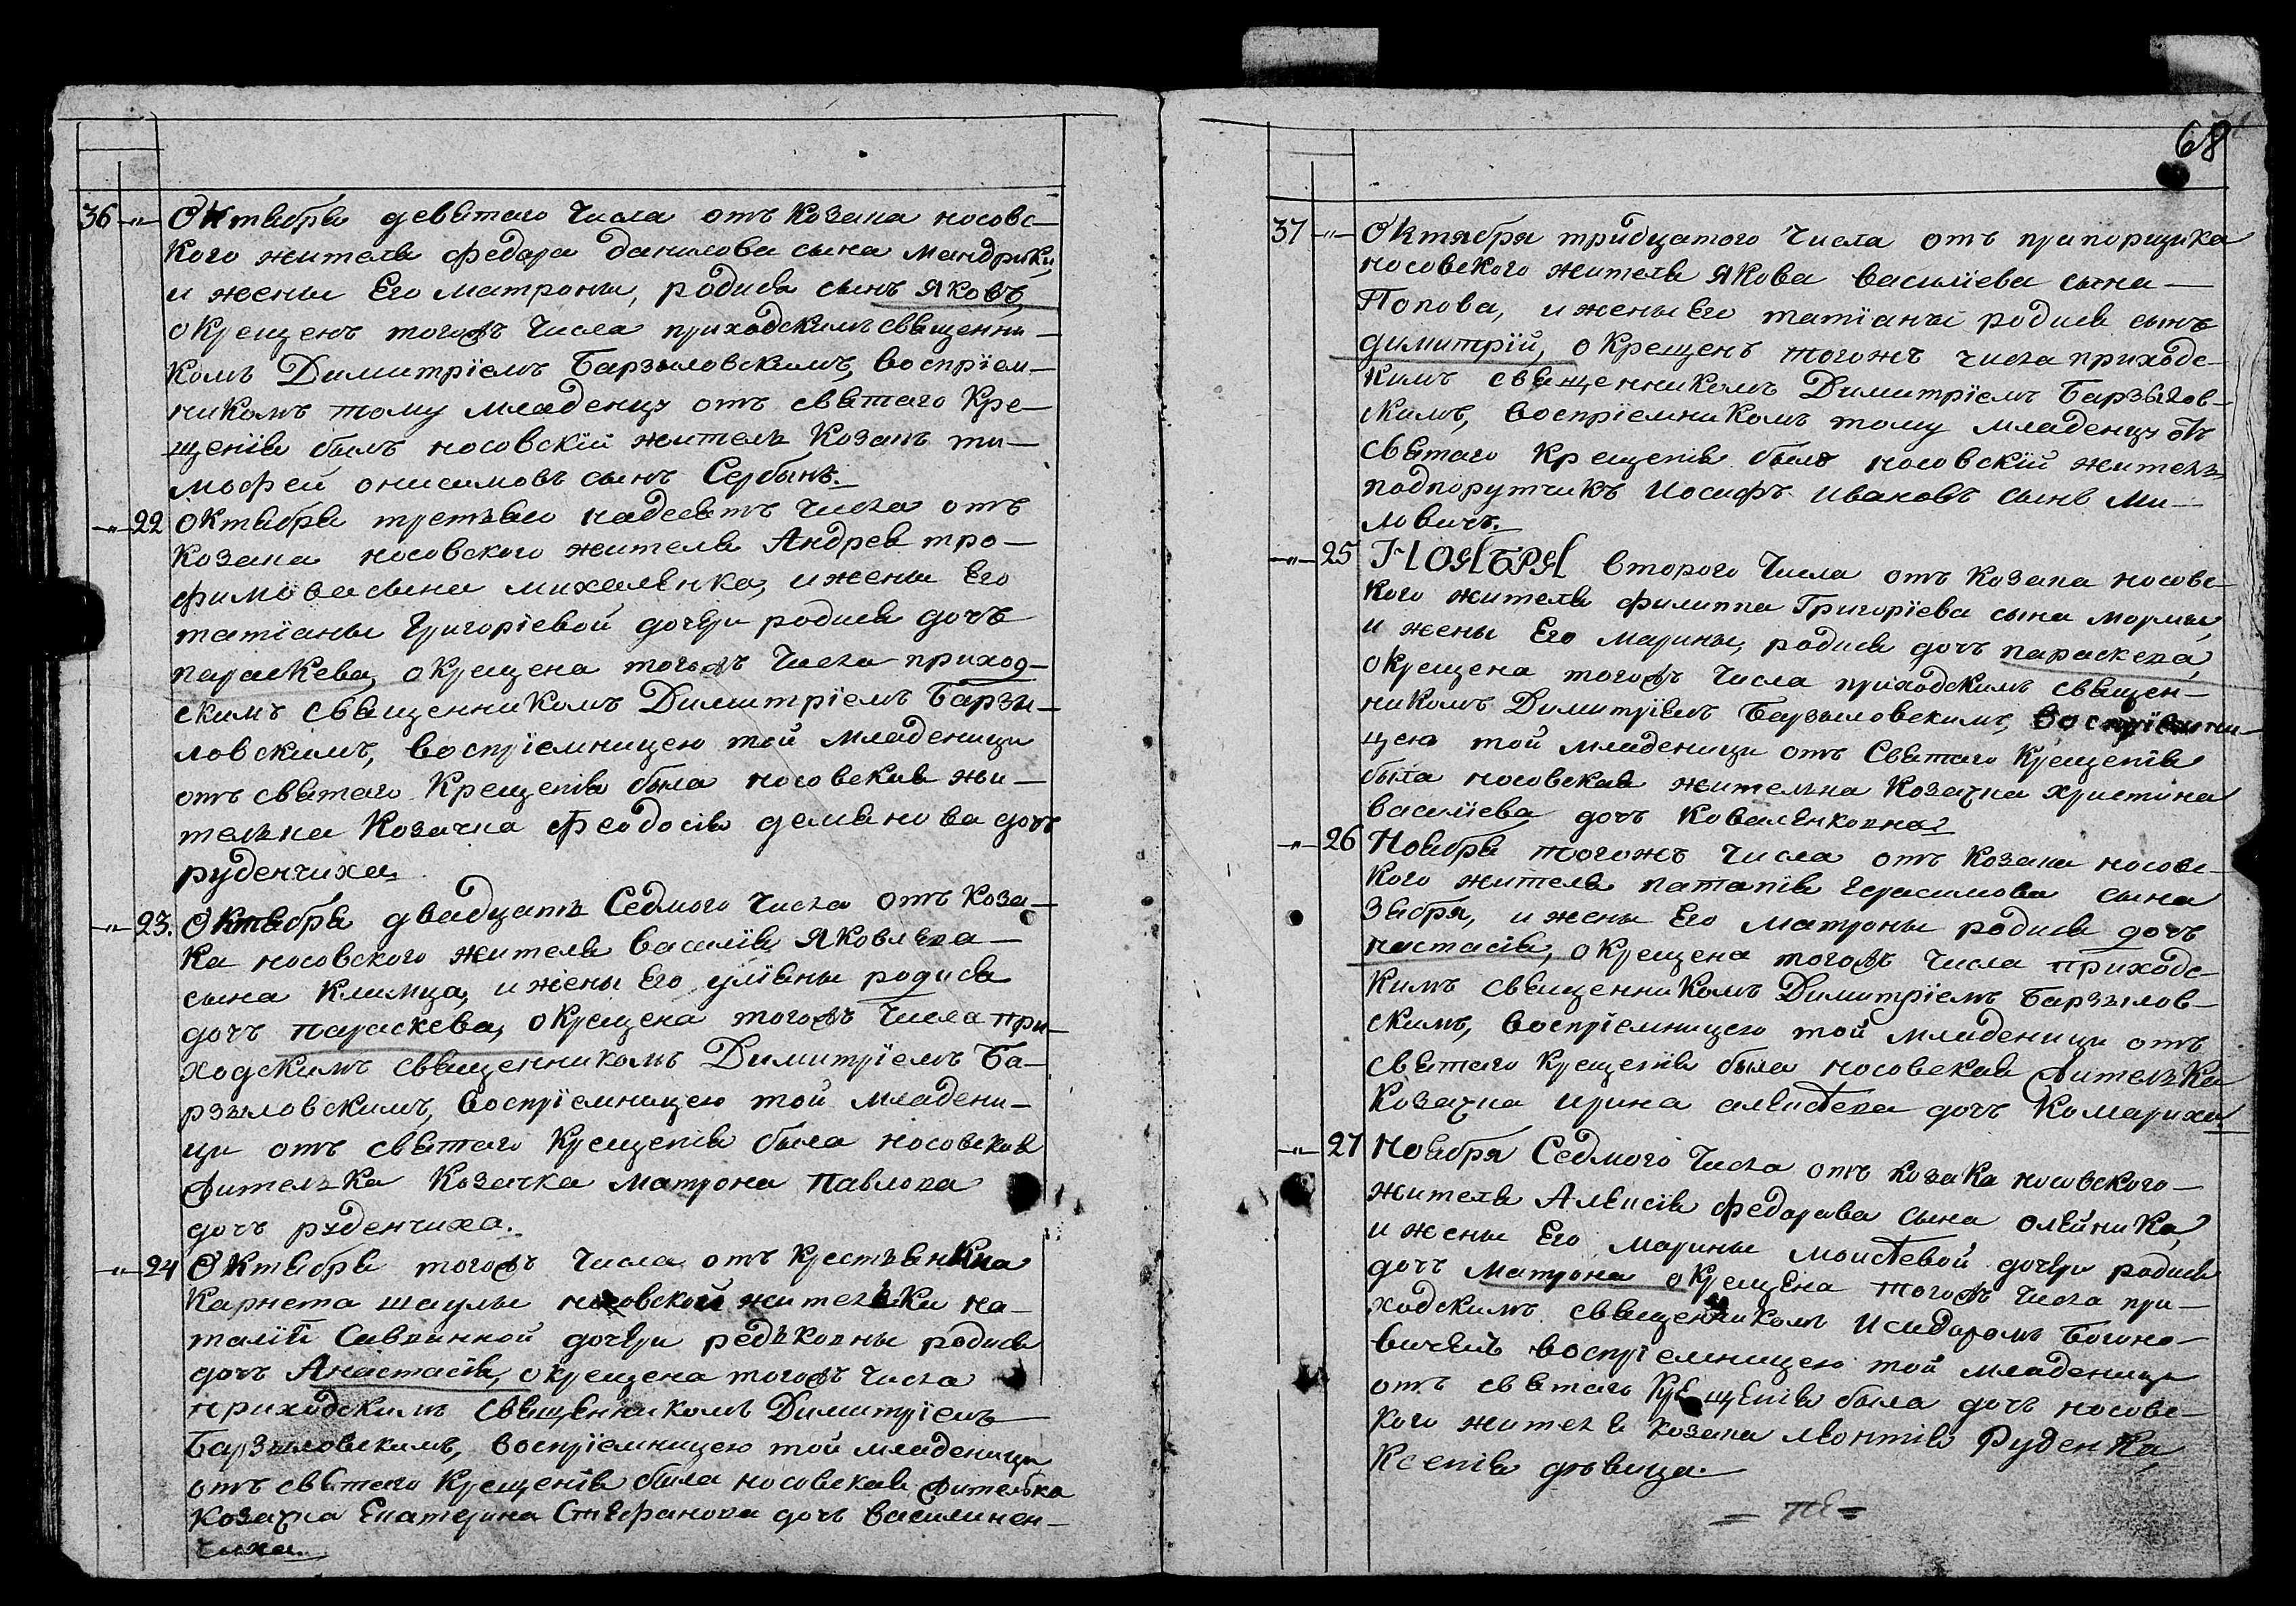 36 -"- Октября девятаго числа отъ козака носовс-
кого жителя федора данилова сына мандрики,
и жены Его матроны, родися сынъ яковъ,
окрещенъ тогожъ числа приходскимъ священни-
комъ Димитріемъ Барзыловскимъ, воспріем-
никомъ тому младенцу отъ святаго Кре-
щенія былъ носовскій житель Козакъ ти-
мофей онисимовъ сынъ Сербинъ.
-"- 22 октября третьяго надесять числа отъ
козака носовского жителя Андрея тро-
фимова сына михаленка, и жены Его
татіаны Григоріевой дочери родися дочъ
параскева, окрещена тогожъ числа приход-
скимъ священникомъ Димитріемъ Барзы-
ловскимъ, воспріемницею той младеници
отъ святаго Крещенія была носовская жи-
телька Козачка Феодосія демянова дочъ
руденчиха.
-"- 23. Октября двадцать Седмого числа отъ коза-
ка носовского жителя василія Яковлева
сына климца, и жены Его уліяны родися
дочъ параскева, окрещена тогожъ числа при-
ходскимъ священникомъ Димитріемъ Ба-
рзыловскимъ, воспріемницею той младени-
ци отъ святаго Крещенія была носовская
жителька Козачка матрона Павлова
дочъ руденчиха.
-"- 24 Октября тогожъ числа отъ крестьянки
Карнета шаулы носовской жительки на-
таліи Саввиной дочери редьковны родися
дочъ Анастасія, окрещена тогожъ числа
приходскимъ священникомъ Димитріемъ
Барзыловскимъ, воспріемницею той младеници
отъ святаго Крещенія была носовская жителька
козачка Екатерина Стефанова дочъ василинен-
чиха.
68
37 -"- Октября тридцатого числа отъ прапорщика
носовского жителя якова василіева сына
Попова, и жены Его татіаны родися сынъ
димитрій, окрещенъ тогожъ числа приходс-
кимъ священникомъ Димитріемъ Барзылов-
скимъ, воспріемникомъ тому младенцу отъ
святаго Крещенія былъ носовскій житель
подпорутчикъ Иосифъ ивановъ сынъ Ми-
ловичъ.
-"- 25 НОЯБРЯ второго числа отъ козака носовс-
кого жителя филиппа Григоріева сына
и жены Его марины, родися дочъ параскева,
окрещена тогожъ числа приходскимъ священ-
никомъ Димитріемъ Барзыловскимъ, воспріемни-
цею той младеници отъ Святаго Крещенія
была носовская жителька Козачка христина
василіева дочъ Коваленковна.
-"- 26 Ноября тогожъ числа отъ козака носовс-
кого жителя патапія герасимова сына
Зября, и жены Его матроны родися дочъ
настасія, окрещена тогожъ числа приходс-
кимъ священникомъ Димитріемъ Барзылов-
скимъ, воспріемницею той младеници отъ
святаго Крещенія была носовская жителька
Козачка ирина алексеева дочъ Комариха.
-"- 27 Ноября Седмого числа отъ козака носовского
жителя Алексія федорова сына олейника,
и жены Его марины моисеевой дочери родися
дочъ матрона окрещена тогожъ числа при-
ходскимъ священникомъ Исидоромъ Богоно-
вичемъ воспріемницею той младеници
отъ святаго Крещенія была дочъ носовс-
кого жителя козака леонтія Руденка,
Ксенія дѣвица.